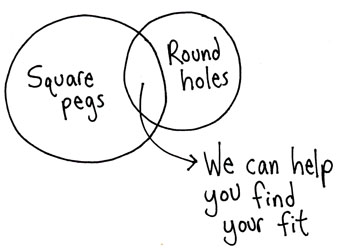 Square
pegs
Round
holes
We can help
you find
your fit